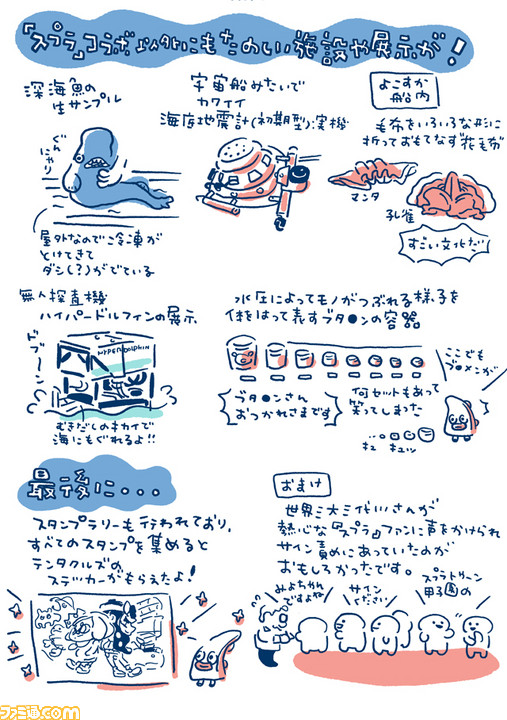 「スプラ」コラボ以外にもたのしい施設や展示が!
深海魚の
生サンプル
ぐんにゃり
屋外なので冷凍が
とけてきて
ダシ(?)がでている
宇宙船みたいで
カワイイ
海底地震計(初期型)実機
よこすか
船内
毛布をいろいろな形に
折っておもてなす花毛布
マンタ
孔雀
すごい文化だ
無人探査機
ハイパードルフィンの展示
ドブーン
HYPER DOLPHIN
むきだしのキカイで
海にもぐれるよ!!
水圧によってモノがつぶれる様子を
体をはって表すブタ●ンの容器
ブタ●ンさん
おつかれさまです
何セットもあって
笑ってしまった
ここでも
ブ●メンが
キュ キュッ
最後に・・・
スタンプラリーも行われており、
すべてのスタンプを集めると
テンタクルズの
ステッカーがもらえたよ!
おまけ
世界三大三代川さんが
熱心な『スプラ』ファンに声をかけられ
サイン責めにあっていたのが
おもしろかったです。
みよちゃん
ですよね
サイン
ください
スプラトゥーン
甲子園の
ファミ通.com